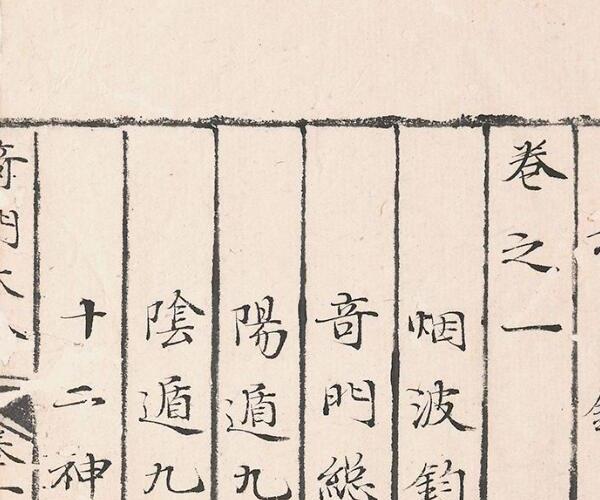 卷之一
烟波釣
竒門総
陽遁九
陰遁九
十二神
竒門大
卷一